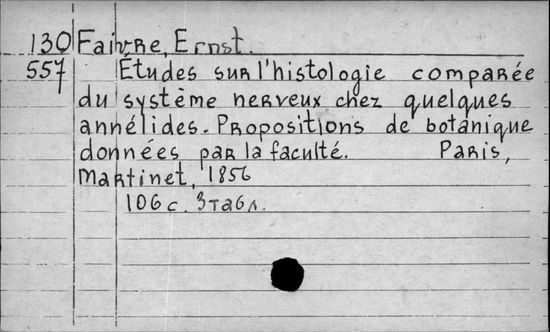 130 Faivre, Ernst.
557 Études sur l'histologie comparée
du système nerveux chez quelques
annélides. Propositions de botanique
données par la faculté. Paris,
Martinet, 1856
106 с. 3 табл.